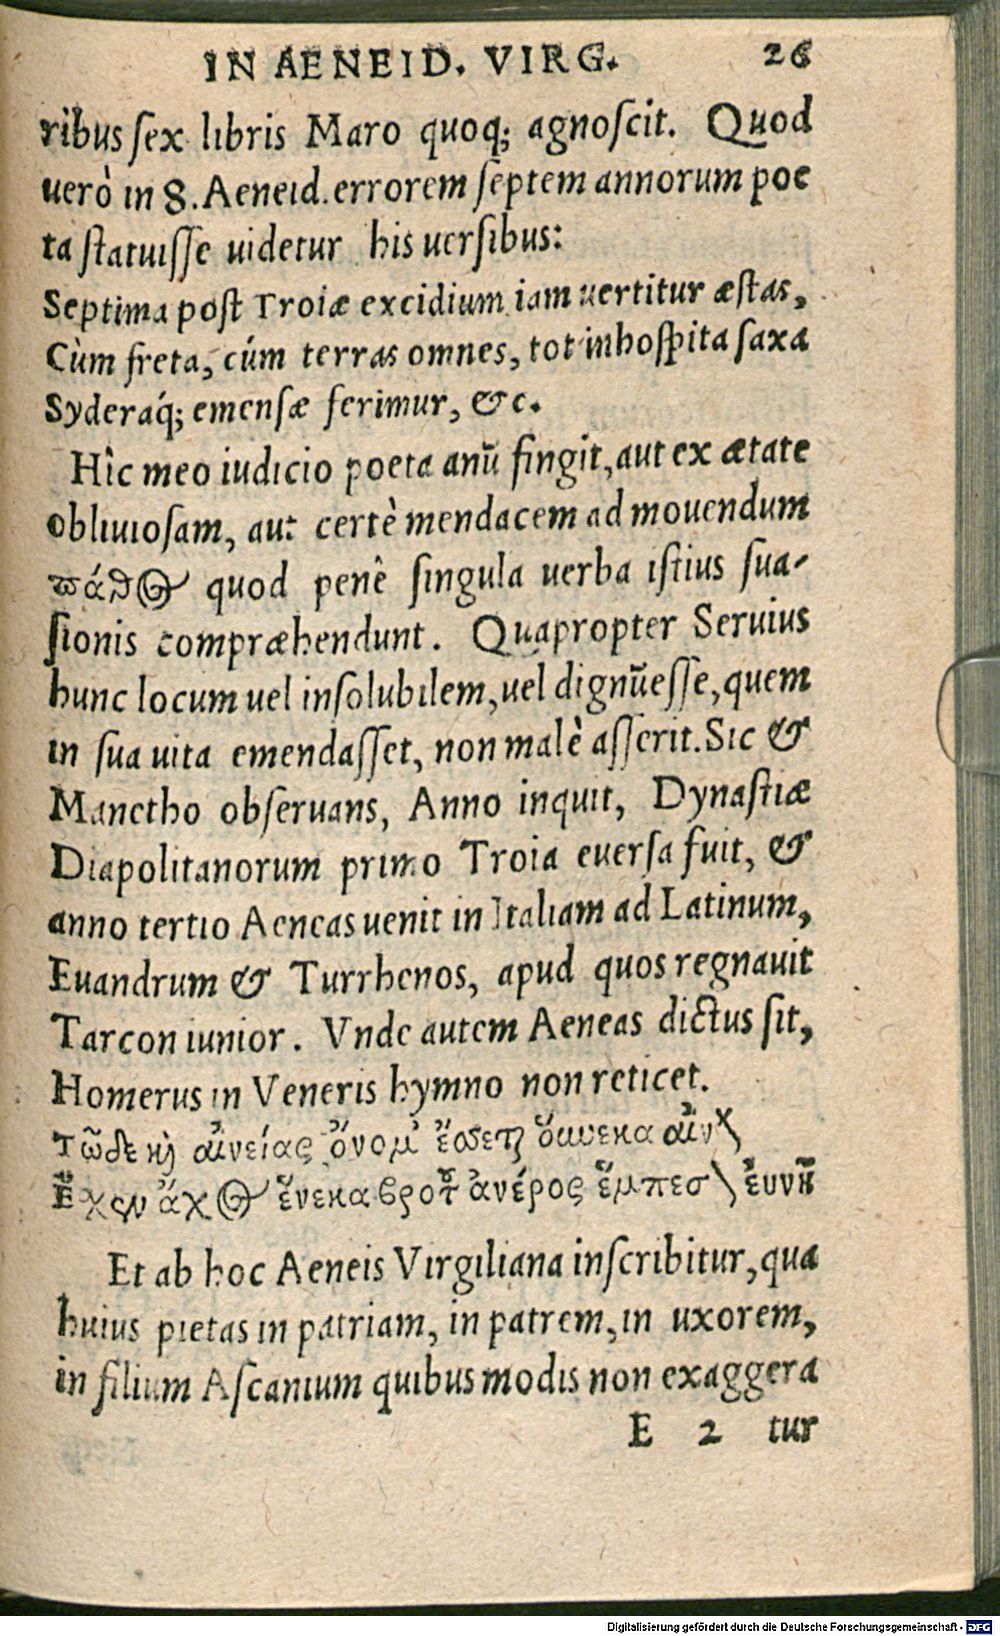 IN AENEID. VIRG. 26
ribus sex libris Maro quoq; agnoscit. Quod
uerò in 8. Aeneid. errorem septem annorum poe
ta statuisse uidetur his uersibus:
Septima post Troiæ excidium iam uertitur æstas,
Cùm freta, cúm terras omnes, tot inhospita saxa
Syderaq́; emensæ ferimur, &c.
Hîc meo iudicio poeta anũ fingit, aut ex ætate
obliuiosam, aut certè mendacem ad mouendum
πάθος quod penè singula uerba istius sua-
sionis compræhendunt. Quapropter Seruius
hunc locum uel insolubilem, uel dignũ esse, quem
in sua uita emendasset, non malè asserit. Sic &
Manetho obseruans, Anno inquit, Dynastiæ
Diapolitanorum primo Troia euersa fuit, &
anno tertio Aeneas uenit in Italiam ad Latinum,
Euandrum & Turrhenos, apud quos regnauit
Tarcon iunior. Vnde autem Aeneas dictus sit,
Homerus in Veneris hymno non reticet.
Τῶδε κὶ αἰνείας ὄνομ' ἔσσεται οὕνεκα αἰνὸν
Ἔχεν ἄχος ἕνεκα βροτοῦ ἀνέρος ἔμπεσον εὐνῆ
Et ab hoc Aeneis Virgiliana inscribitur, qua
huius pietas in patriam, in patrem, in uxorem,
in filium Ascanium quibus modis non exaggera
E 2 tur
Digitalisierung gefördert durch die Deutsche Forschungsgemeinschaft - DFG